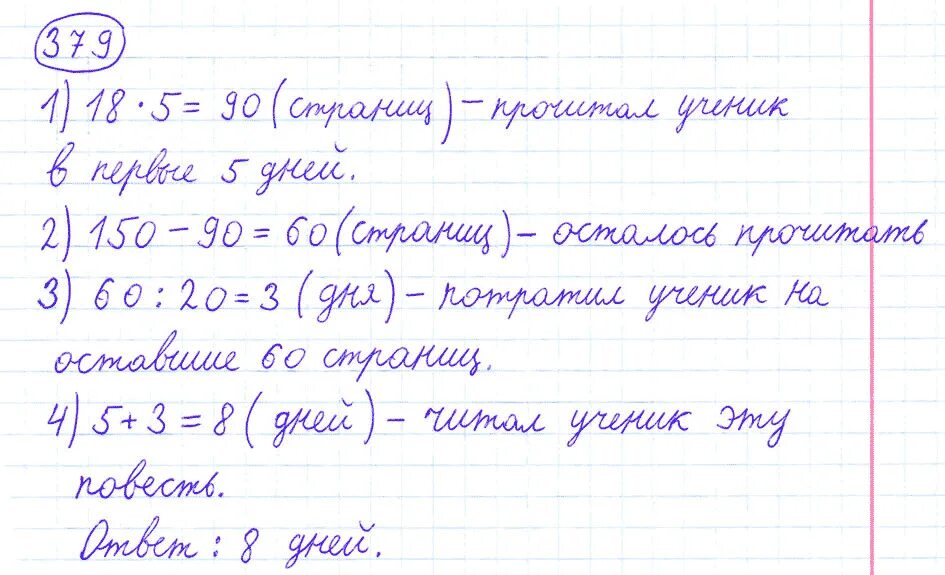 379
1) 18 · 5 = 90 (страниц) – прочитал ученик
в первые 5 дней.
2) 150 – 90 = 60 (страниц) – осталось прочитать
3) 60 : 20 = 3 (дня) – потратил ученик на
оставшие 60 страниц.
4) 5 + 3 = 8 (дней) – читал ученик эту
повесть.
Ответ : 8 дней.